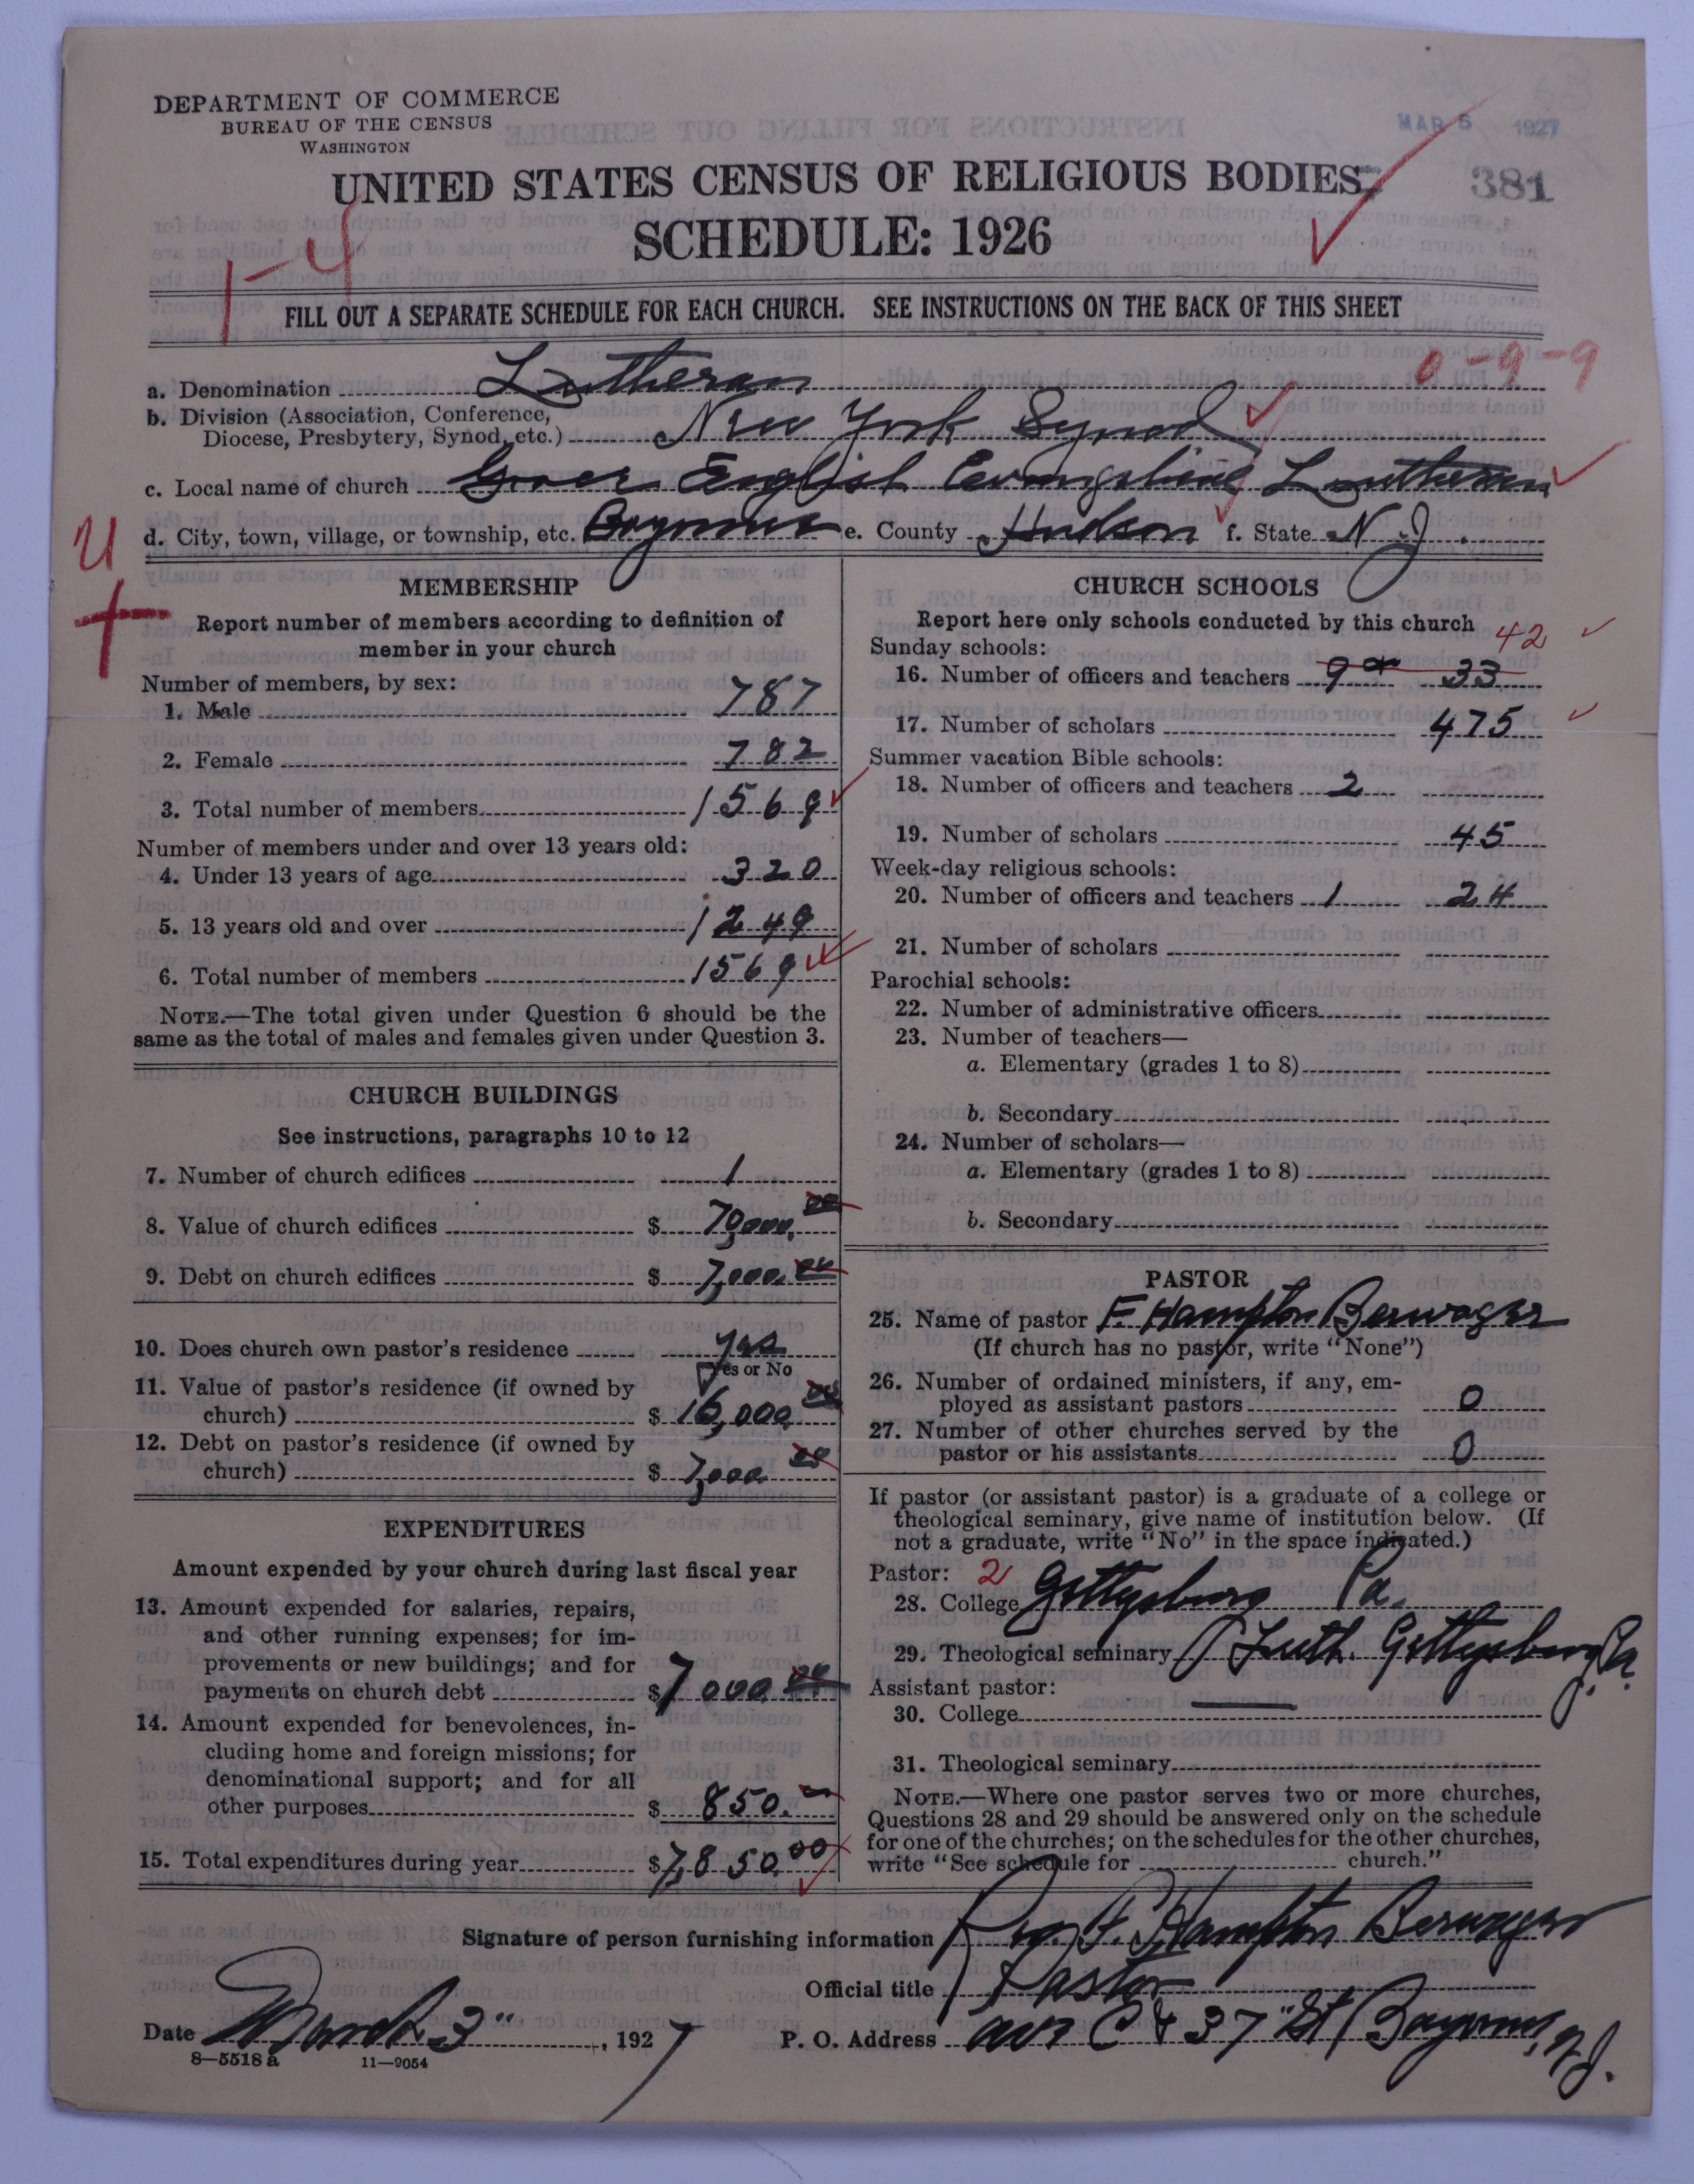 DEPARTMENT OF COMMERCE
BUREAU OF THE CENSUS
WASHINGTON
MAR 5 1927
UNITED STATES CENSUS OF RELIGIOUS BODIES
381
SCHEDULE: 1926
1-4
FILL OUT A SEPARATE SCHEDULE FOR EACH CHURCH. SEE INSTRUCTIONS ON THE BACK OF THIS SHEET
0-9-9
a. Denomination Lutheran
b. Division (Association, Conference,
Diocese, Presbytery, Synod, etc.) New York Synod
c. Local name of church Grace English Evangelical Lutheran
d. City, town, village, or township, etc. Bayonne e. County Hudson f. State N.J.
MEMBERSHIP
Report number of members according to definition of
member in your church
Number of members, by sex:
1. Male 787
2. Female 782
3. Total number of members 1569
Number of members under and over 13 years old:
4. Under 13 years of age 320
5. 13 years old and over 1249
6. Total number of members 1569
NOTE.—The total given under Question 6 should be the
same as the total of males and females given under Question 3.
CHURCH BUILDINGS
See instructions, paragraphs 10 to 12
7. Number of church edifices 1
8. Value of church edifices $ 70,000.00
9. Debt on church edifices $ 7,000.00
10. Does church own pastor's residence yes
Yes or No
11. Value of pastor's residence (if owned by
church) $ 16,000.00
12. Debt on pastor's residence (if owned by
church) $ 7,000 00
EXPENDITURES
Amount expended by your church during last fiscal year
13. Amount expended for salaries, repairs,
and other running expenses; for im-
provements or new buildings; and for
payments on church debt $ 7000 00
14. Amount expended for benevolences, in-
cluding home and foreign missions; for
denominational support; and for all
other purposes $ 850.
15. Total expenditures during year $ 7,850.00
CHURCH SCHOOLS
Report here only schools conducted by this church
Sunday schools: 42
16. Number of officers and teachers 9 or 33
17. Number of scholars 475
Summer vacation Bible schools:
18. Number of officers and teachers 2
19. Number of scholars 45
Week-day religious schools:
20. Number of officers and teachers 1 24
21. Number of scholars
Parochial schools:
22. Number of administrative officers
23. Number of teachers—
a. Elementary (grades 1 to 8)
b. Secondary
24. Number of scholars—
a. Elementary (grades 1 to 8)
b. Secondary
PASTOR
25. Name of pastor F. Hampton Berwager
(If church has no pastor, write "None")
26. Number of ordained ministers, if any, em-
ployed as assistant pastors 0
27. Number of other churches served by the
pastor or his assistants 0
If pastor (or assistant pastor) is a graduate of a college or
theological seminary, give name of institution below. (If
not a graduate, write "No" in the space indicated.)
Pastor: 2
28. College Gettysburg Pa.
29. Theological seminary Luth. Gettysburg Pa.
Assistant pastor:
30. College
31. Theological seminary
NOTE.—Where one pastor serves two or more churches,
Questions 28 and 29 should be answered only on the schedule
for one of the churches; on the schedules for the other churches,
write "See schedule for church."
Signature of person furnishing information Rev. F. Hampton Berwager
Official title Pastor
Date March 3", 1927 P. O. Address Ave C & 37" St Bayonne, N.J.
8—5518a 11—9054